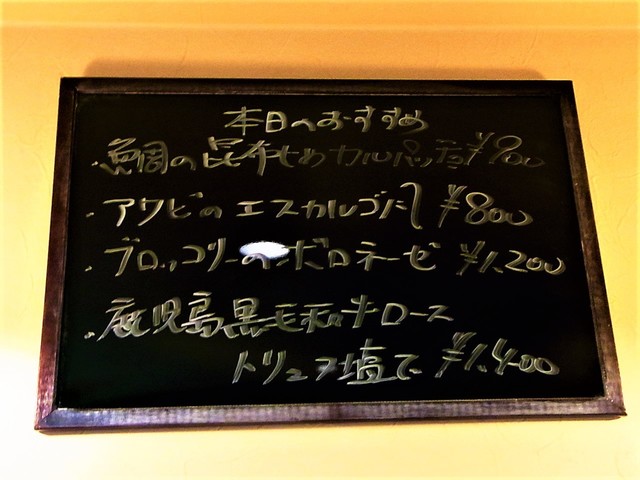 本日のおすすめ
・鯛の昆布〆めカルパッチョ ¥900
・アワビのエスカルゴ風 ¥800
・ブロッコリーのボロネーゼ ¥1,200
・鹿児島黒毛和牛ロース
トリュフ塩で ¥1,400